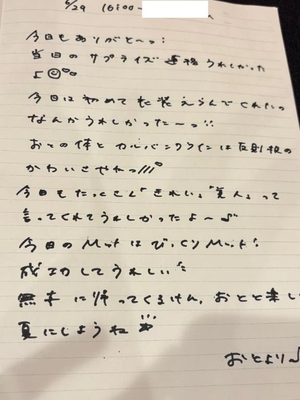 6/29 16:00-
今日もありがと〜っ!
当日のサプライズ連絡うれしかった
よ
今日は初めて私装えらんでくれたの
なんかうれしかった〜っ!!
おとの体と カバンクラインは反則級の
かわいさやわっ!!!
今日もたっくさん「きれい」「美人」って
言ってくれてうれしかったよ〜♪
今日のMットはびっくりMット!
成功してうれしい
無事に帰ってくるけん、おとと楽し
夏にしようね
おとより♪